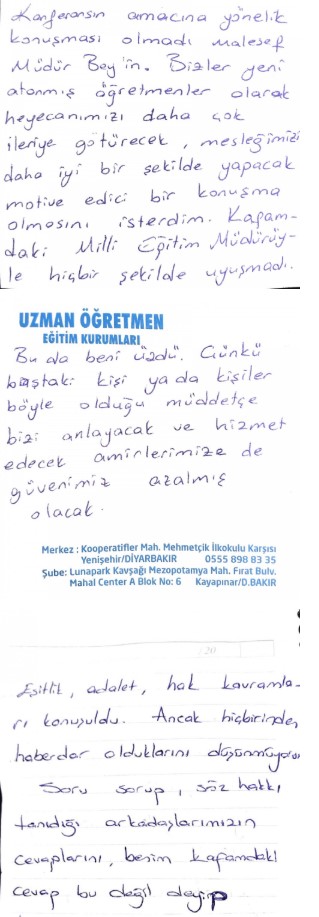 Konferansın amacına yönelik
konuşması olmadı malesef
Müdür Bey'in. Bizler yeni
atanmış öğretmenler olarak
heyecanımızı daha çok
ileriye götürecek, mesleğimizi
daha iyi bir şekilde yapacak
motive edici bir konuşma
olmasını isterdim. Kafam-
daki Milli Eğitim Müdürüy-
le hiçbir şekilde uyuşmadı.
UZMAN ÖĞRETMEN
EĞİTİM KURUMLARI
Bu da beni üzdü. Çünkü
baştaki kişi ya da kişiler
böyle olduğu müddetçe
bizi anlayacak ve hizmet
edecek amirlerimize de
güvenimiz azalmış
olacak.
Merkez : Kooperatifler Mah. Mehmetçik İlkokulu Karşısı
Yenişehir/DİYARBAKIR 0555 898 83 35
Şube: Lunapark Kavşağı Mezopotamya Mah. Fırat Bulv.
Mahal Center A Blok No: 6 Kayapınar/D.BAKIR
/20
Eşitlik, adalet, hak kavramla-
rı konuşuldu. Ancak hiçbirinden
haberdar olduklarını düşünmüyorum
Soru sorup, söz hakkı
tanıdığı arkadaşlarımızın
cevaplarını, benim kafamdaki
cevap bu değil deyip